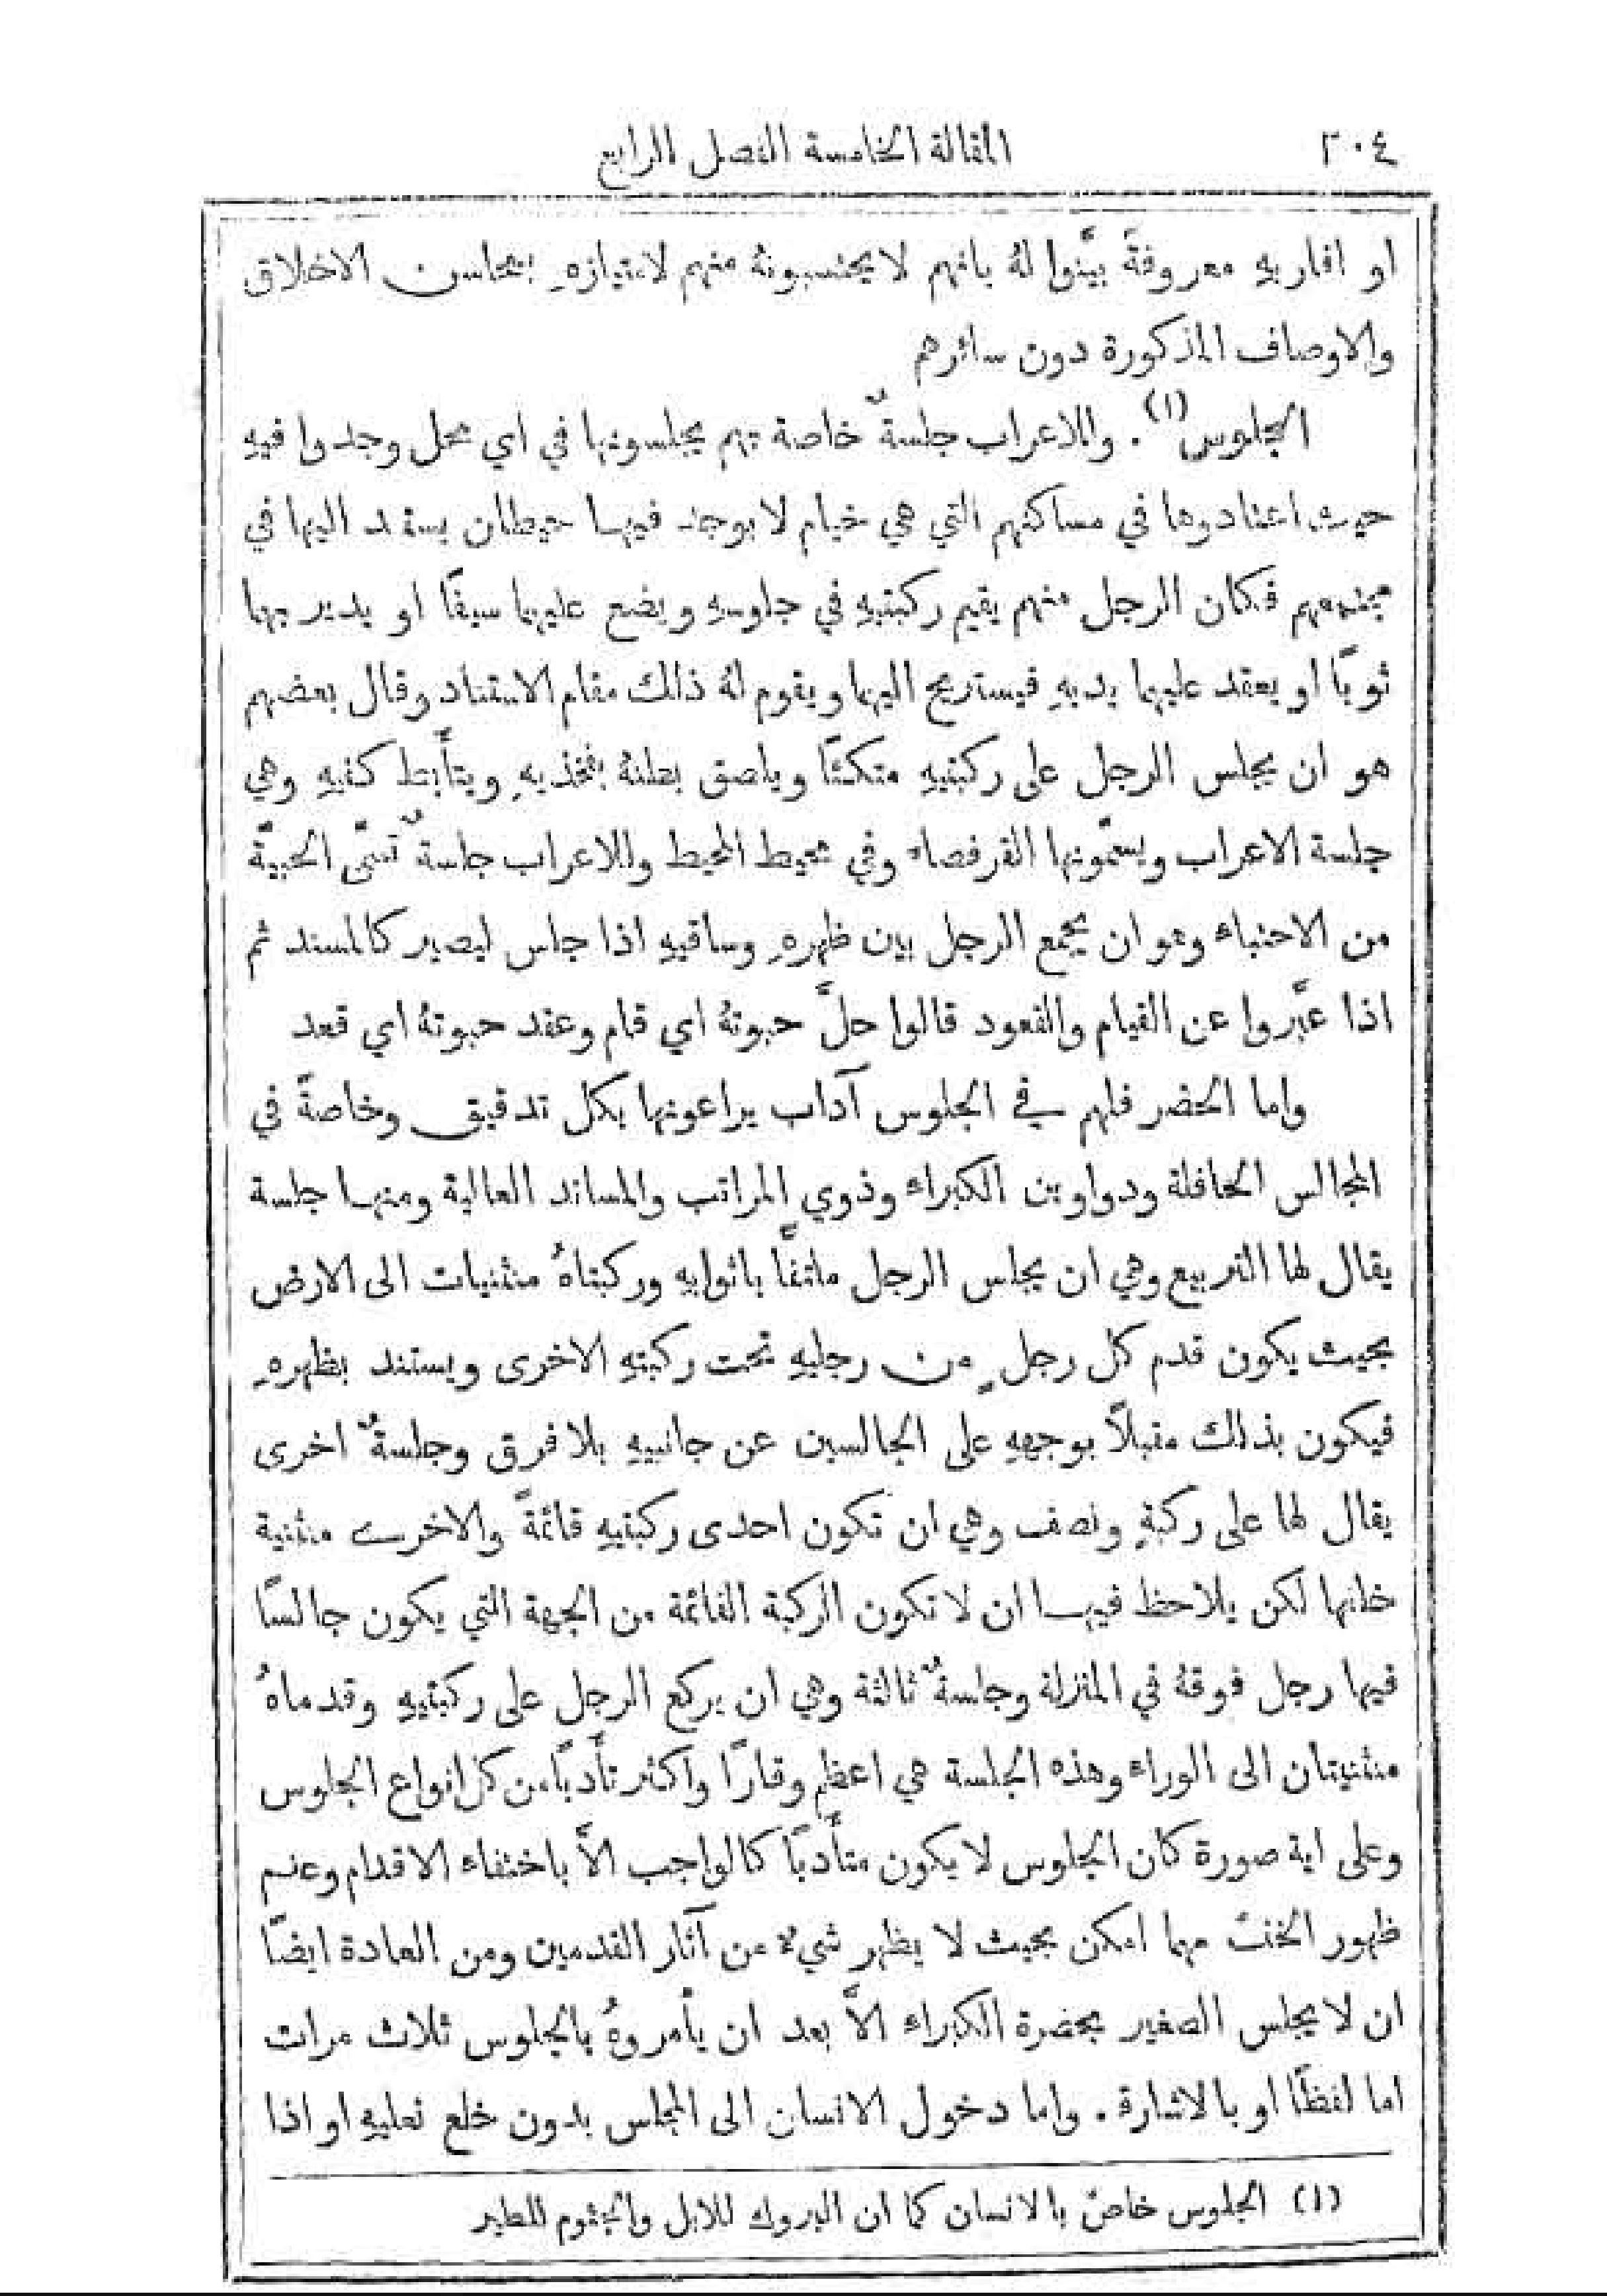 ٣٠٤ المقالة الخامسة الفصل الرابع
او اقاربهِ معروفةً بيَّنوا لهُ بانهم لا يحتسبونهُ منهم لامتيازهِ بمحاسن الاخلاق
والاوصاف المذكورة دون سائرهم
الجلوس(١). وللاعراب جلسةٌ خاصة بهم يجلسونها في اي محل وجدوا فيهِ
حيث اعتادوها في مساكنهم التي هي خيام لا يوجد فيها حيطان يستند اليها في
مجتمعهم فكان الرجل منهم يقيم ركبتيهِ في جلوسهِ ويضع عليهما سيفًا او يدير بهما
ثوبًا او يعقد عليهما يديهِ فيستريح اليهما ويقوم لهُ ذلك مقام الاستناد وقال بعضهم
هو ان يجلس الرجل على ركبتيهِ متكئًا ويلصق بطنهُ بفخذيهِ ويتأَبط كفيهِ وهي
جلسة الاعراب ويسمّونها القرفصاء وفي محيط المحيط وللاعراب جلسةٌ تسمَّى الحبيَّة
من الاحتباء وهو ان يجمع الرجل بين ظهرهِ وساقيهِ اذا جلس ليصير كالمسند ثم
اذا عبَّروا عن القيام والقعود قالوا حلَّ حبوتهُ اي قام وعقد حبوتهُ اي قعد
واما الحضر فلهم في الجلوس آداب يراعونها بكل تدقيق وخاصةً في
المجالس الحافلة ودواوين الكبراء وذوي المراتب والمساند العالية ومنها جلسة
يقال لها التربيع وهي ان يجلس الرجل ملتفًّا باثوابهِ وركبتاهُ منثنيات الى الارض
بحيث يكون قدم كل رجلٍ من رجليهِ تحت ركبتهِ الاخرى ويستند بظهرهِ
فيكون بذلك مقبلاً بوجههِ على الجالسين عن جانبيهِ بلا فرق وجلسةٌ اخرى
يقال لها على ركبةٍ ونصف وهي ان تكون احدى ركبتيهِ قائمةً والاخرى منثنية
خلفها لكن يلاحظ فيها ان لا تكون الركبة القائمة من الجهة التي يكون جالسًا
فيها رجل فوقهُ في المنزلة وجلسةٌ ثالثة وهي ان يركع الرجل على ركبتيهِ وقدماهُ
منثنيتان الى الوراء وهذه الجلسة هي اعظم وقارًا واكثر تأَدبًا من كل انواع الجلوس
وعلى اية صورة كان الجلوس لا يكون متأَدبًا كالواجب الاَّ باختفاء الاقدام وعدم
ظهور الخفّ مهما امكن بحيث لا يظهر شيءٌ من آثار القدمين ومن العادة ايضًا
ان لا يجلس الصغير بحضرة الكبراء الاَّ بعد ان يأمروهُ بالجلوس ثلاث مرات
اما لفظًا او بالاشارة. واما دخول الانسان الى المجلس بدون خلع نعليهِ او اذا
(١) الجلوس خاصٌّ بالانسان كما ان البروك للابل والجثوم للطير